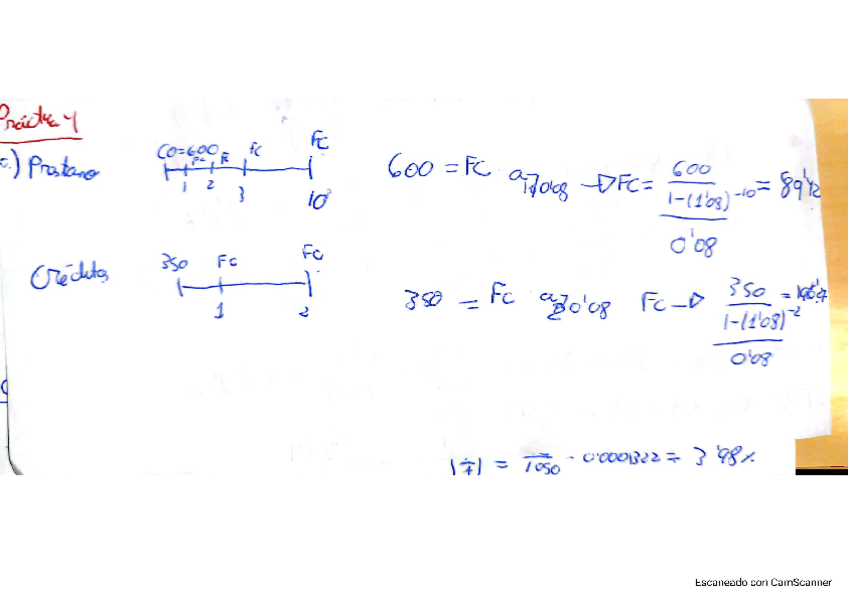 Práctica 4
a.) Préstamo
C0=600 Fc Fc Fc Fc
1 2 3 10
600 = Fc a 10 0'08 → Fc = 600 / (1-(1'08)^-10 / 0'08) = 89'42
Créditos
350 Fc Fc
1 2
350 = Fc a 2 0'08 Fc → 350 / (1-(1'08)^-2 / 0'08) =
1050 · 0'0001322 = 3'98%
Escaneado con CamScanner